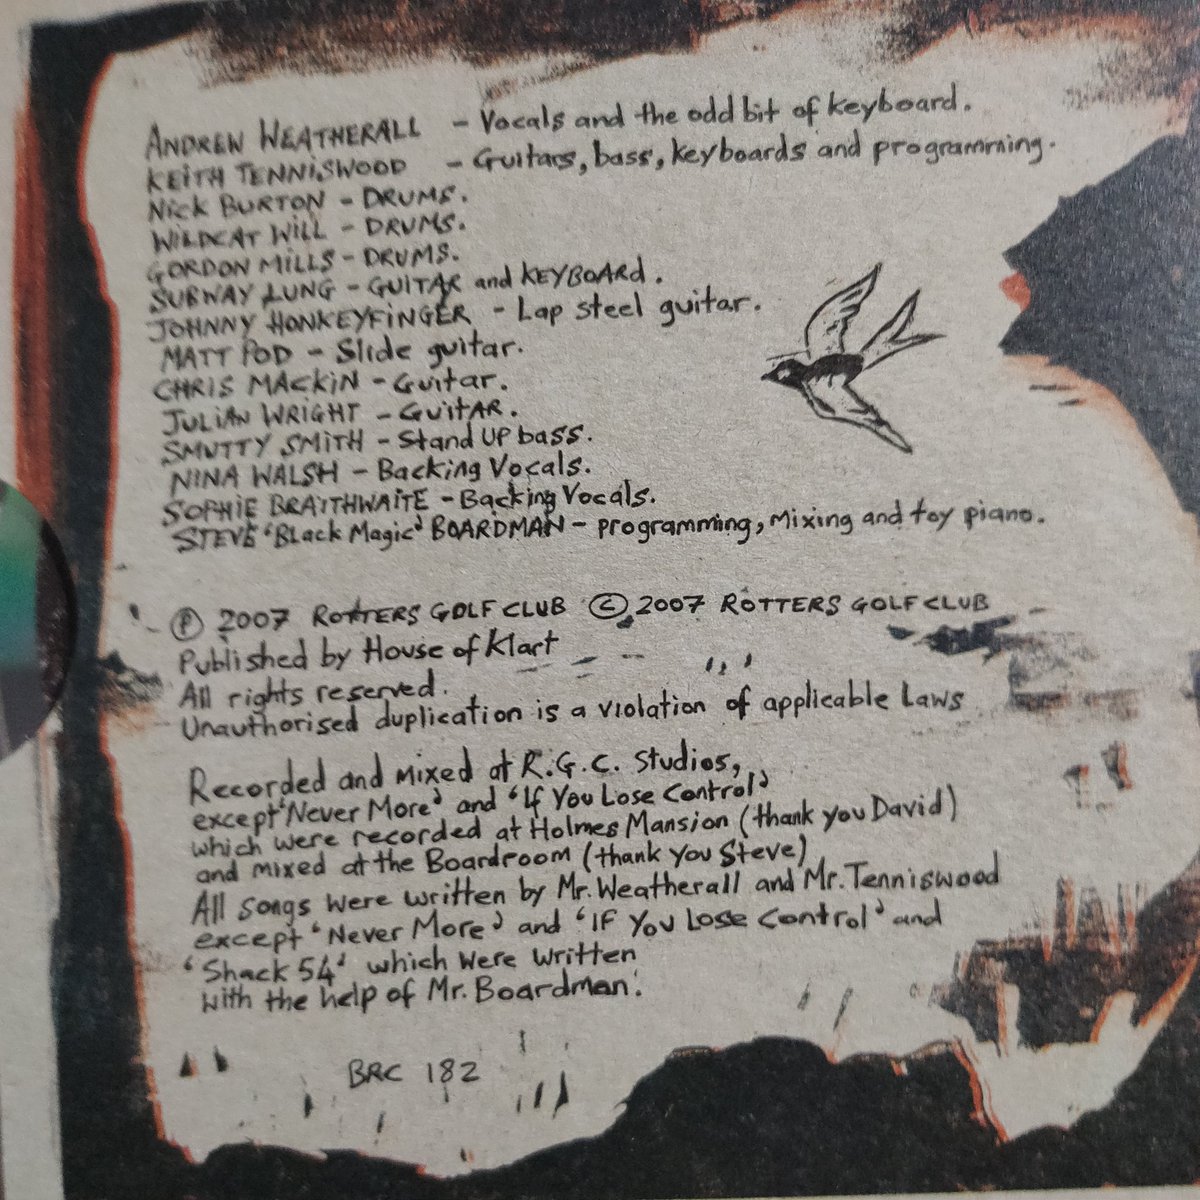 ANDREW WEATHERALL - Vocals and the odd bit of keyboard.
KEITH TENNISWOOD - Guitars, bass, keyboards and programming.
Nick BURTON - DRUMS.
WILDCAT WILL - DRUMS.
GORDON MILLS - DRUMS.
SUBWAY LUNG - GUITAR and KEYBOARd.
JOHNNY HONKEYFINGER - Lap steel guitar.
MATT POD - Slide guitar.
CHRIS MACKIN - Guitar.
JULIAN WRIGHT - GUITAR.
SMUTTY SMITH - Stand UP bass.
NINA WALSH - Backing Vocals.
SOPHIE BRAITHWAITE - Backing Vocals.
STEVE 'Black Magic' BOARDMAN - programming, Mixing and toy piano.
Ⓟ 2007 ROTTERS GOLF CLUB © 2007 ROTTERS GOLF CLUB
Published by House of Klart
All rights reserved.
Unauthorised duplication is a violation of applicable Laws
Recorded and mixed at R.G.C. Studios,
except 'Never More' and 'If You Lose Control'
which were recorded at Holmes Mansion (thank you David)
and mixed at the Boardroom (thank you Steve)
All songs were written by Mr. Weatherall and Mr. Tenniswood
except 'Never More' and 'IF You Lose Control' and
'Shack 54' which were written
with the help of Mr. Boardman.
BRC 182